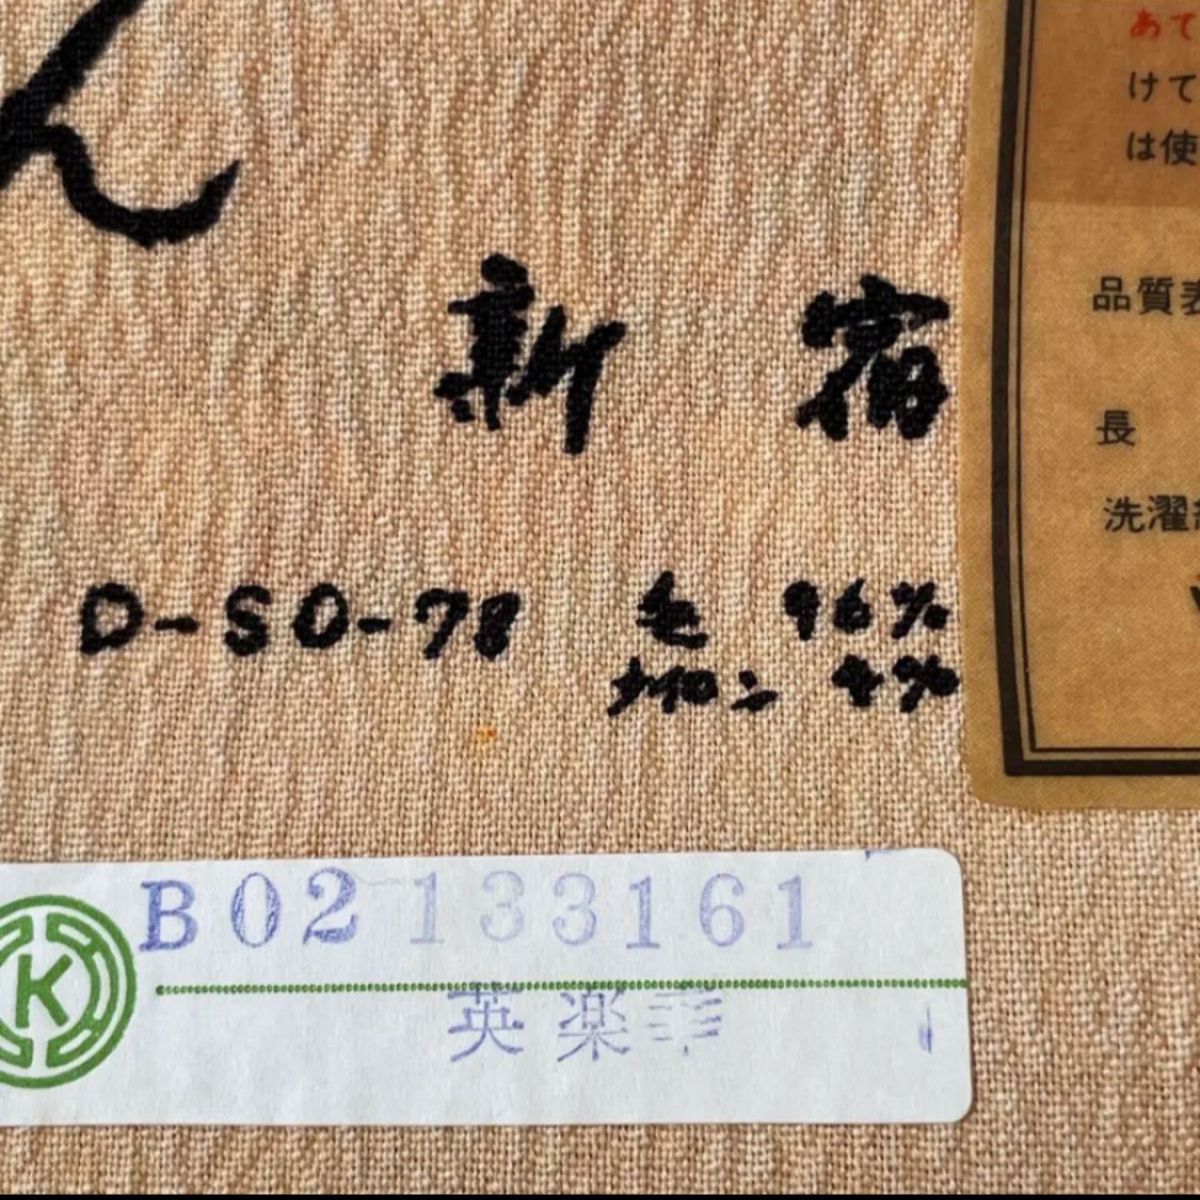 ん
新宿
D-SO-78 毛 96%
ナイロン 4%
あて
けて
は使
品質表
長
洗濯
K
B02133161
英楽